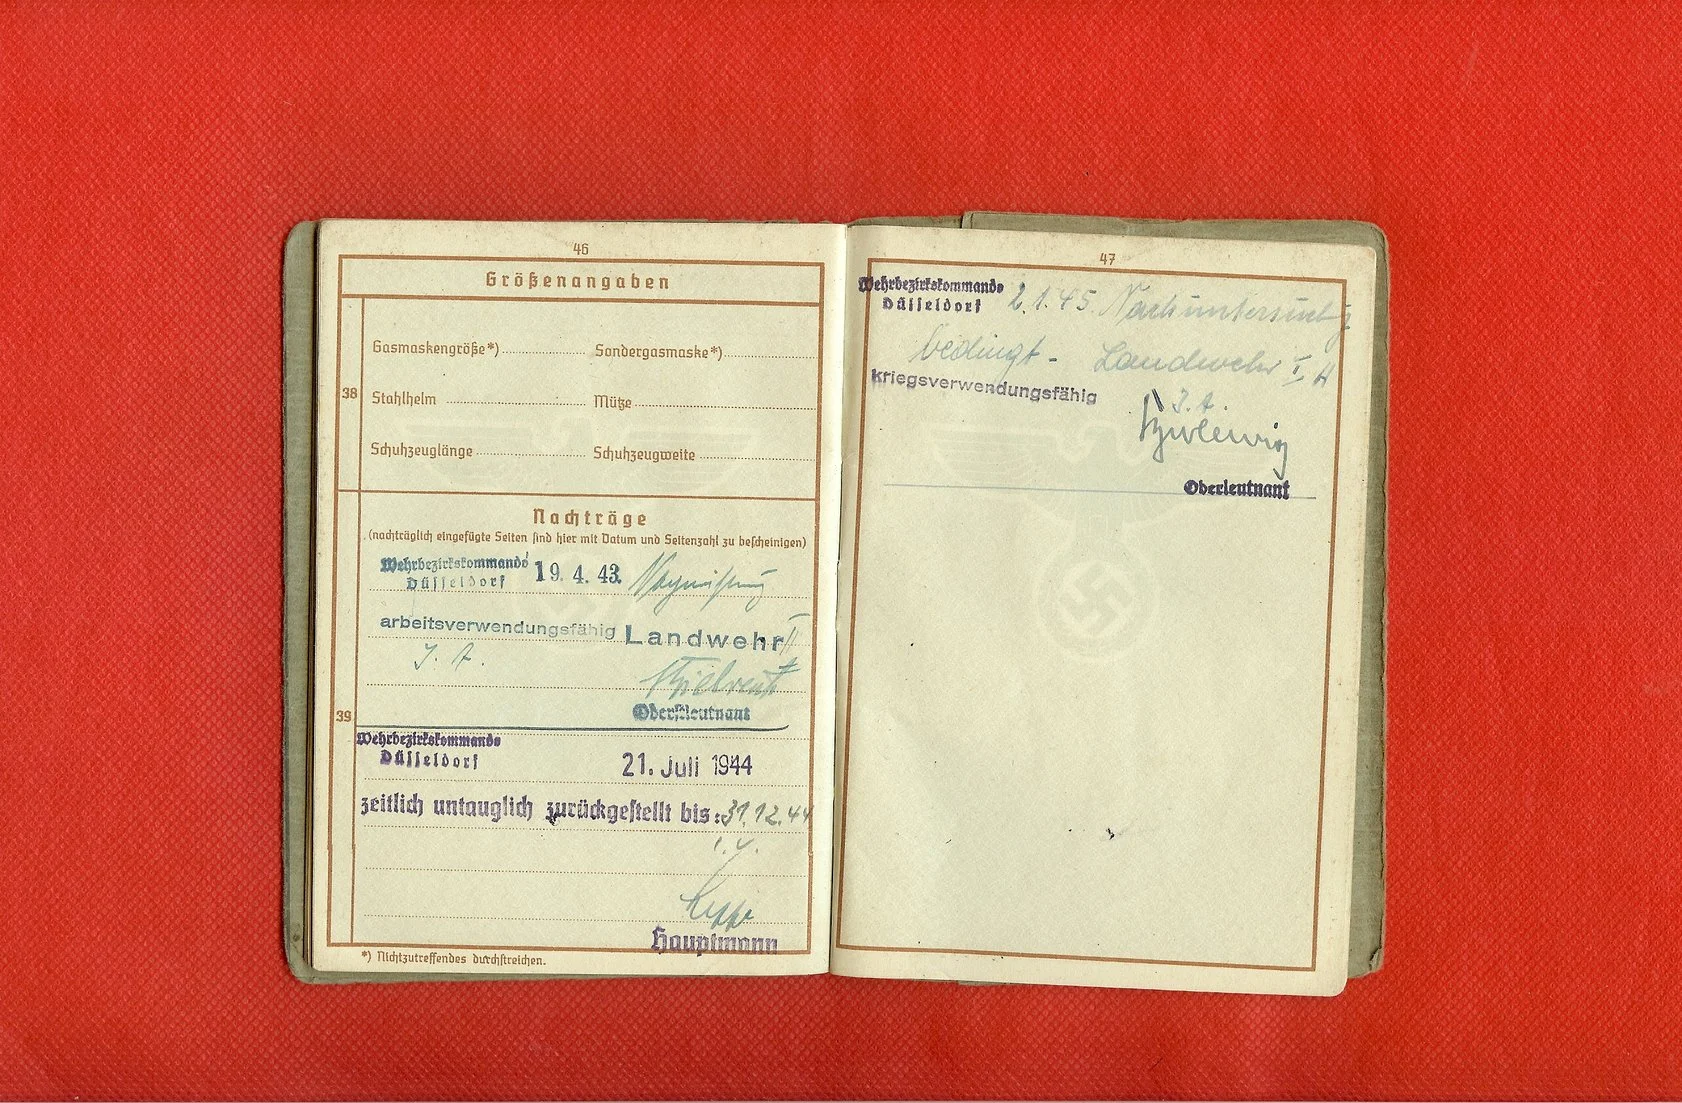 46
Größenangaben
38
Gasmaskengröße*) Sondergasmaske*)
Stahlhelm Mütze
Schuhzeuglänge Schuhzeugweite
Nachträge
(nachträglich eingefügte Seiten sind hier mit Datum und Seitenzahl zu bescheinigen)
39
Wehrbezirkskommando
Düsseldorf 19. 4. 43.
arbeitsverwendungsfähig Landwehr II
J. A.
Oberstleutnant
Wehrbezirkskommando
Düsseldorf 21. Juli 1944
zeitlich untauglich zurückgestellt bis: 31.12.44
Hauptmann
*) Nichtzutreffendes durchstreichen.
47
Wehrbezirkskommando
Düsseldorf 2.1.45. Nachuntersuchg
bedingt- Landwehr I
kriegsverwendungsfähig
J. A.
Oberleutnant